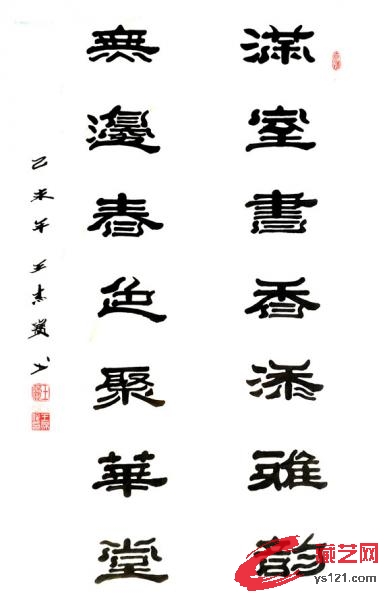 滿室書香添雅韵
無邊春色聚華堂
乙未年王素賢书
诚艺网
ys121.com